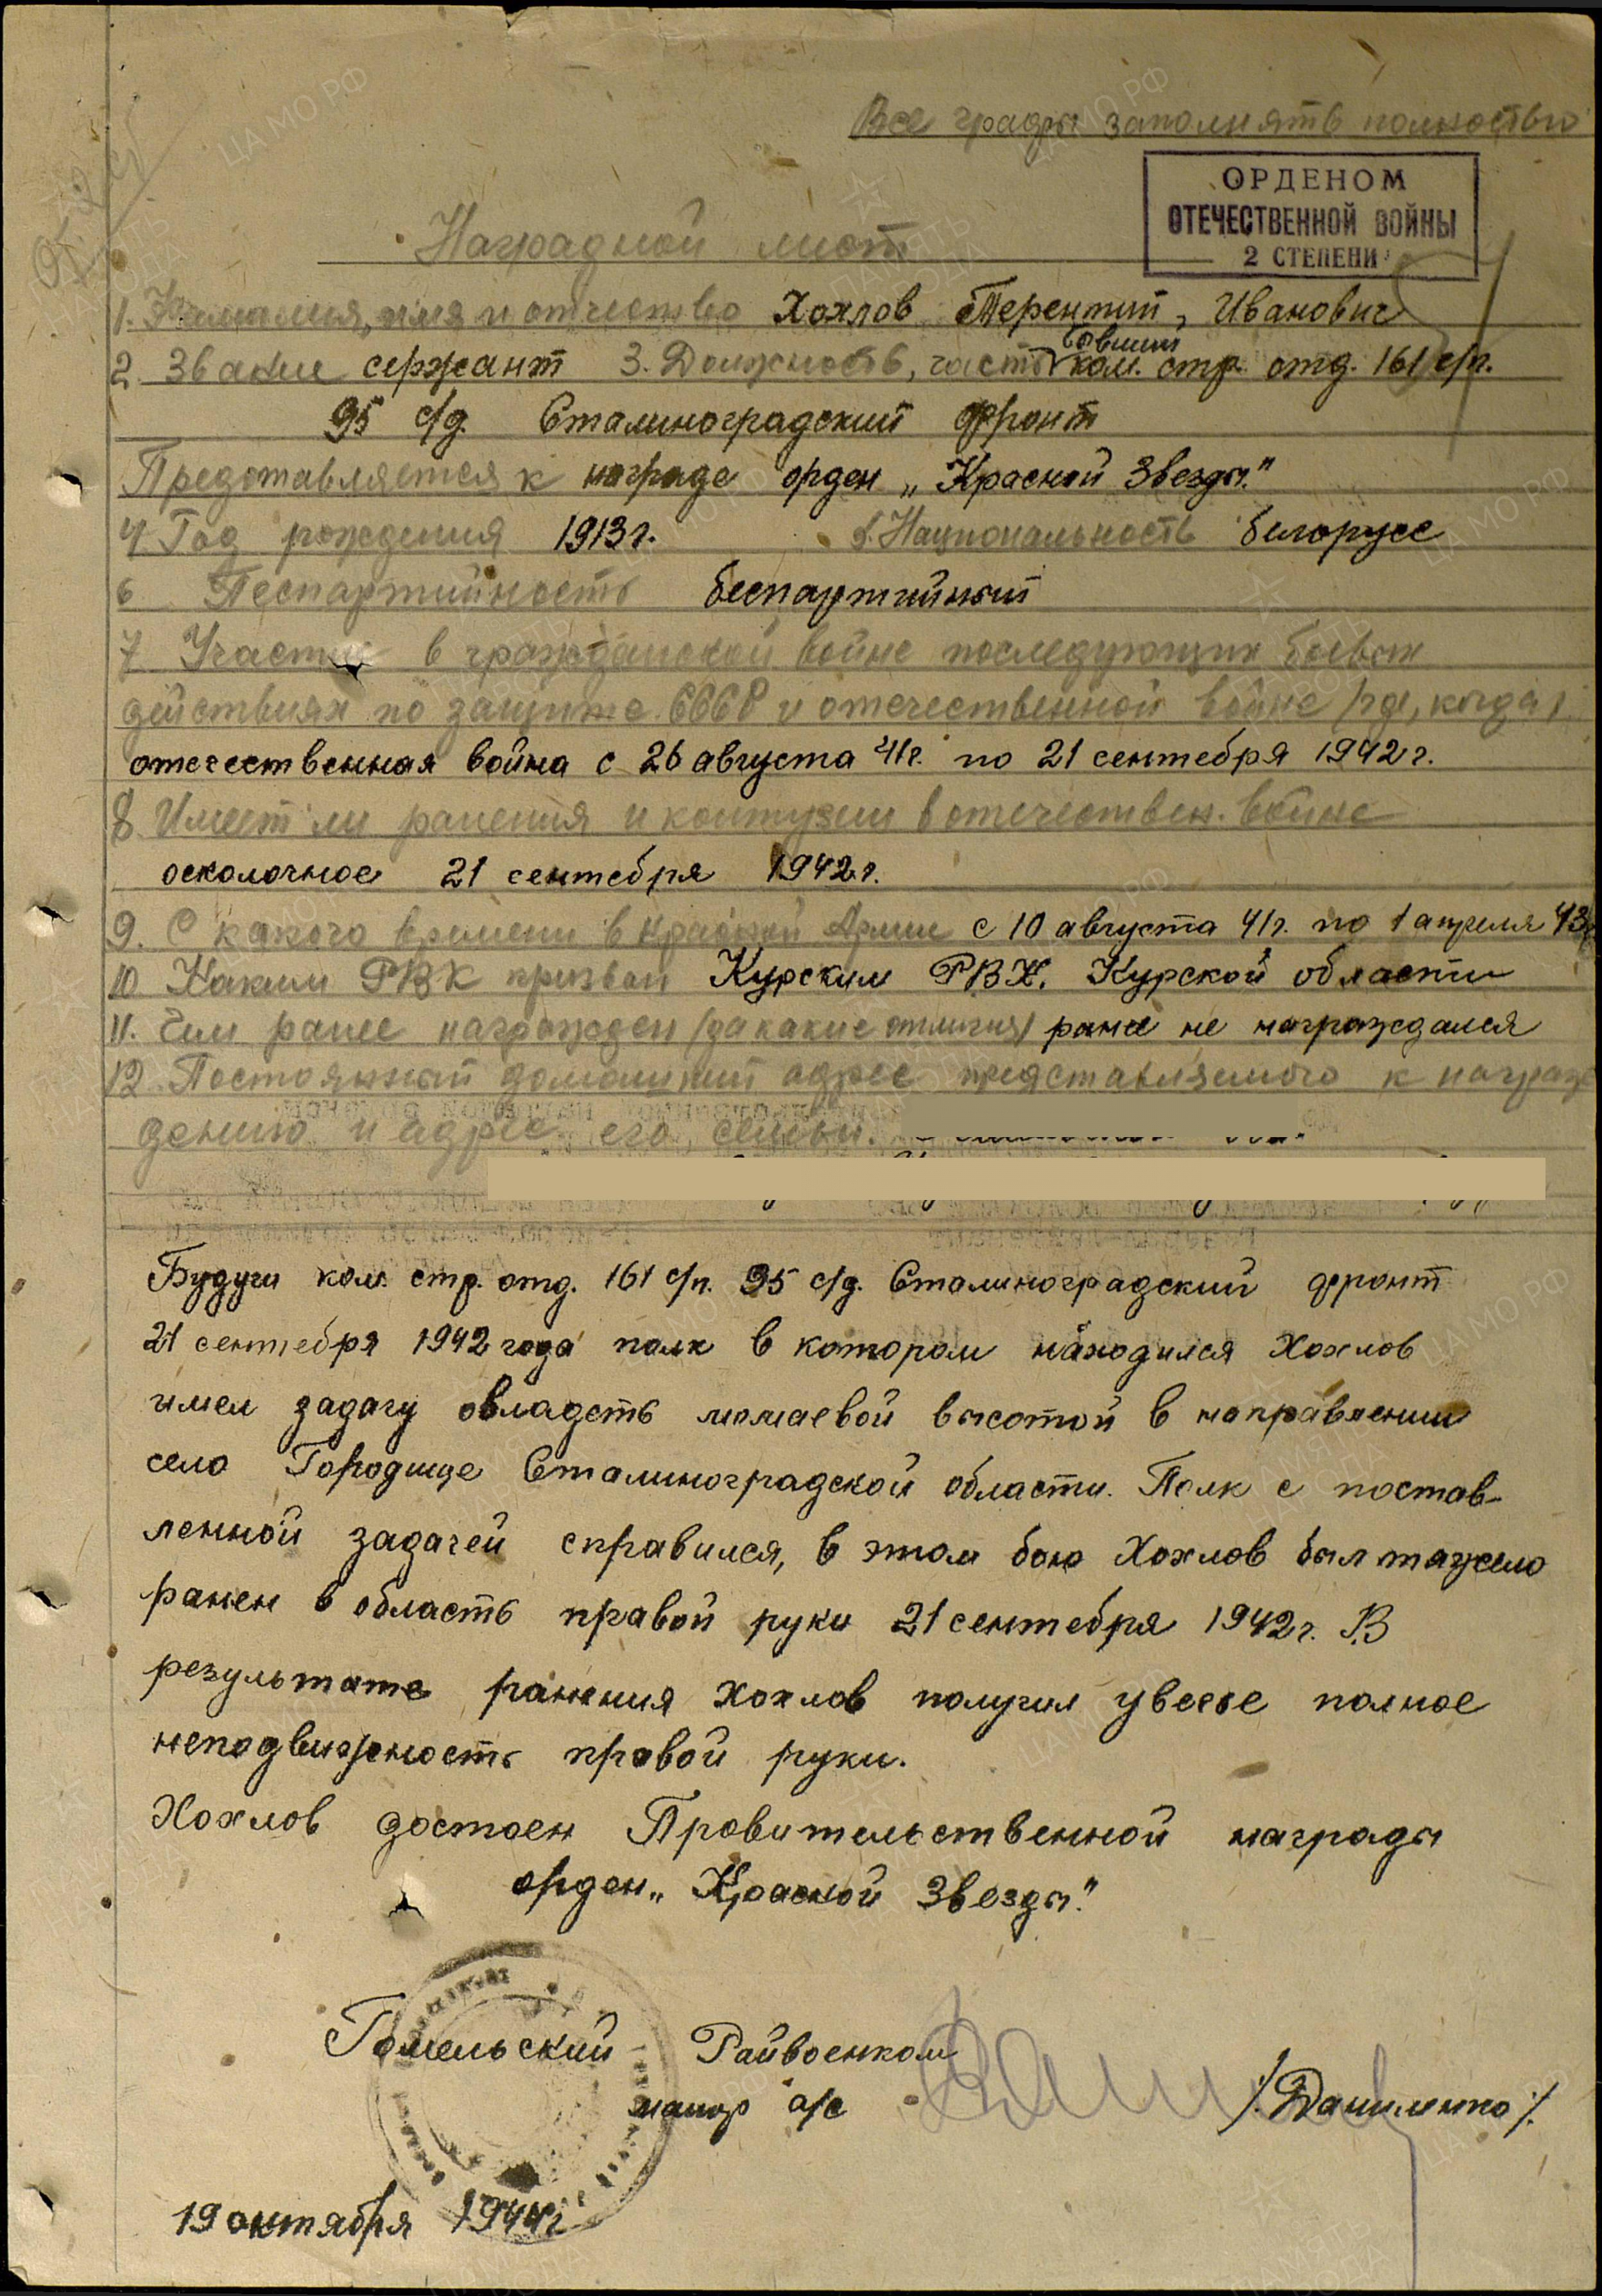 Все графы заполнять полностью
ОРДЕНОМ
ОТЕЧЕСТВЕННОЙ ВОЙНЫ
2 СТЕПЕНИ
Наградной лист
1. Фамилия, имя и отчество Хохлов Терентий, Иванович
бывший
2. Звание сержант 3. Должность, часть ком. стр. отд. 161 с/п.
95 с/д. Сталиноградский фронт
Представляется к награде орден „Красной Звезды."
4 Год рождения 1913 г. 5. Национальность белорусс
6 Песпартийность беспартийный
7 Участие в гражданской войне последующих боевых
действиях по защите СССР и отечественной войне /где, когда/
отечественная война с 26 августа 41 г. по 21 сентября 1942 г.
8 Имеет ли ранения и контузии в отечествен. войне
осколочное 21 сентября 1942 г.
9. С какого времени в красной Армии с 10 августа 41 г. по 1 апреля 43
10 Каким РВК призван Курским РВК. Курской области
11. Чем ранее награжден /за какие отличия/ ранее не награждался
12. Постоянный домашний адрес представляемого к награж
дению и адрес его семьи.
Будучи ком. стр. отд. 161 с/п. 95 с/д. Сталиноградский фронт
21 сентября 1942 года полк в котором находился Хохлов
имел задачу овладеть момаевой высотой в направлении
село Городище Сталиноградской области. Полк с постав-
ленной задачей справился, в этом бою Хохлов был тяжело
ранен в область правой руки 21 сентября 1942 г. В
результате ранения Хохлов получил увечье полное
неподвижность правой руки.
Хохлов достоен Правительственной награды
орден „Красной Звезды."
Гомельский Райвоенком
майор а/с /Даниленко/.
19 октября 1944 г